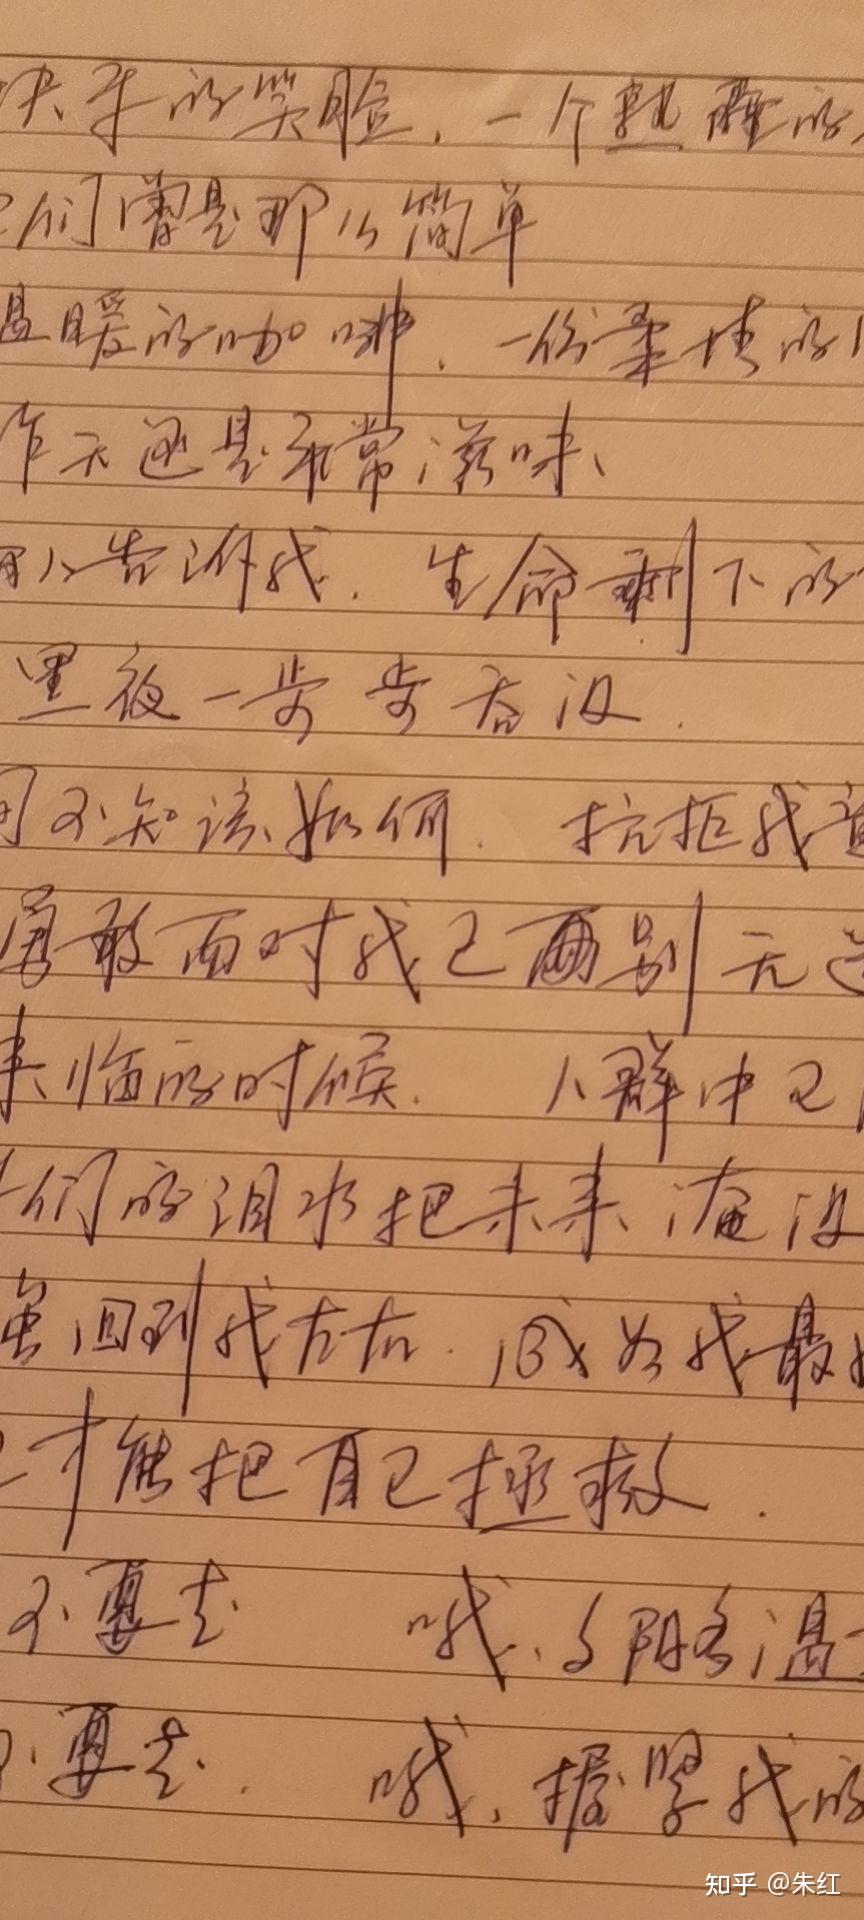 快乐的笑脸，一个熟睡的
它们曾是那么简单
温暖的咖啡，一份柔情的
昨天还是平常滋味、
有人告诉我，生命剩下的
黑夜一步步吞没．
间不知该如何．抗拒我
勇敢面对我已两别无选
来临的时候．人群中已
我们的泪水把未来淹没
重回到我左右．成为我最
才能把自己拯救．
不要走 哦、与阳光温
不要走． 哦，握紧我的
知乎 @朱红